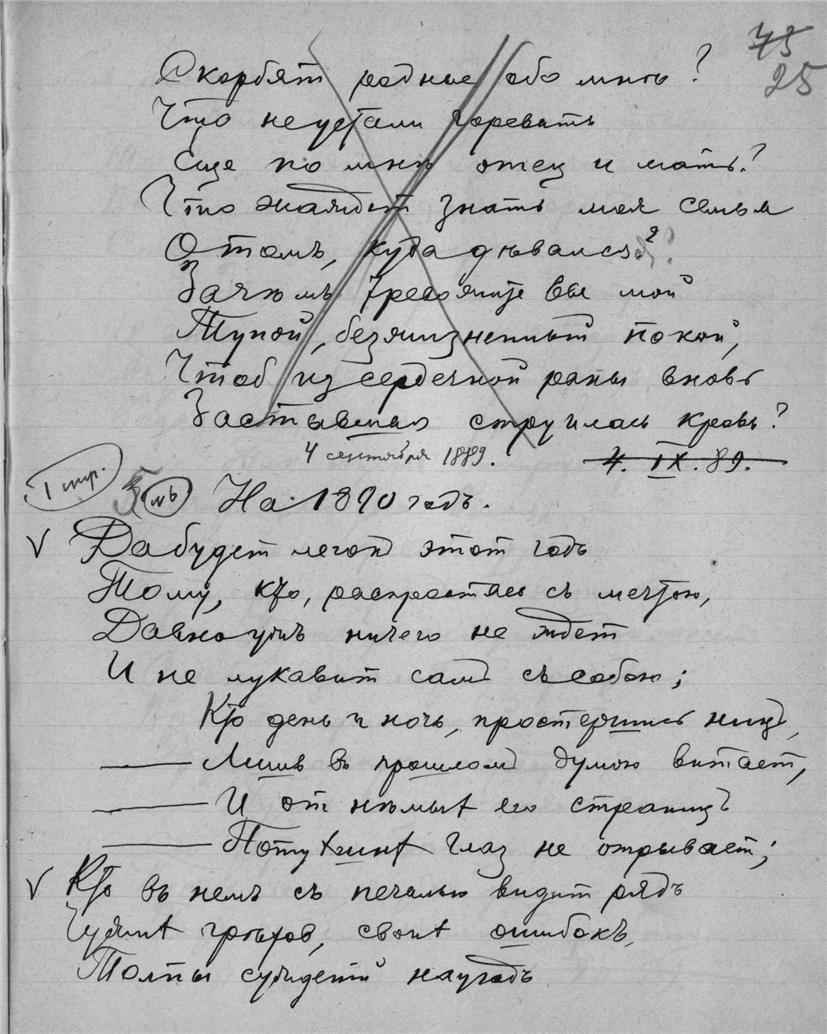 75
25
Скорбятъ родные обо мнѣ?
Что не устали горевать
Еще по мнѣ отец и мать?
Что жаждет знать моя семья
О томъ, куда дѣвался я?
Зачѣмъ тревожите вы мой
Тупой, безжизненный покой,
Чтоб из сердечной раны вновь
Заставшая струилась кровь?
4 сентября 1889. 4. IX. 89.
1 стр. 5 На 1890 годъ.
Да будет легок этот годъ
Тому, кто, распростясь съ мечтою,
Давно ужъ ничего не ждет
И не лукавит самъ съ собою;
Кто день и ночь, простершись ницъ,
Лишь въ прошлом думою витает,
И от нѣмых его страницъ
Потухших глаз не отрывает;
Кто въ немъ съ печалью видит рядъ
Чужих грѣхов, своих ошибокъ,
Толпы суждений наугадъ